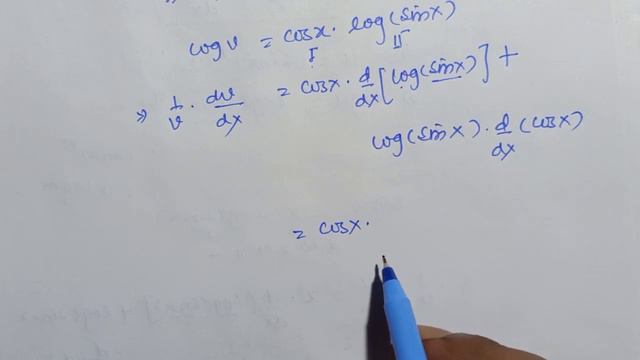 log v = cosx . log(sinx)
I II
⇒ 1/v . dv/dx = cosx . d/dx [log(sinx)] +
log(sinx) . d/dx (cosx)
= cosx .